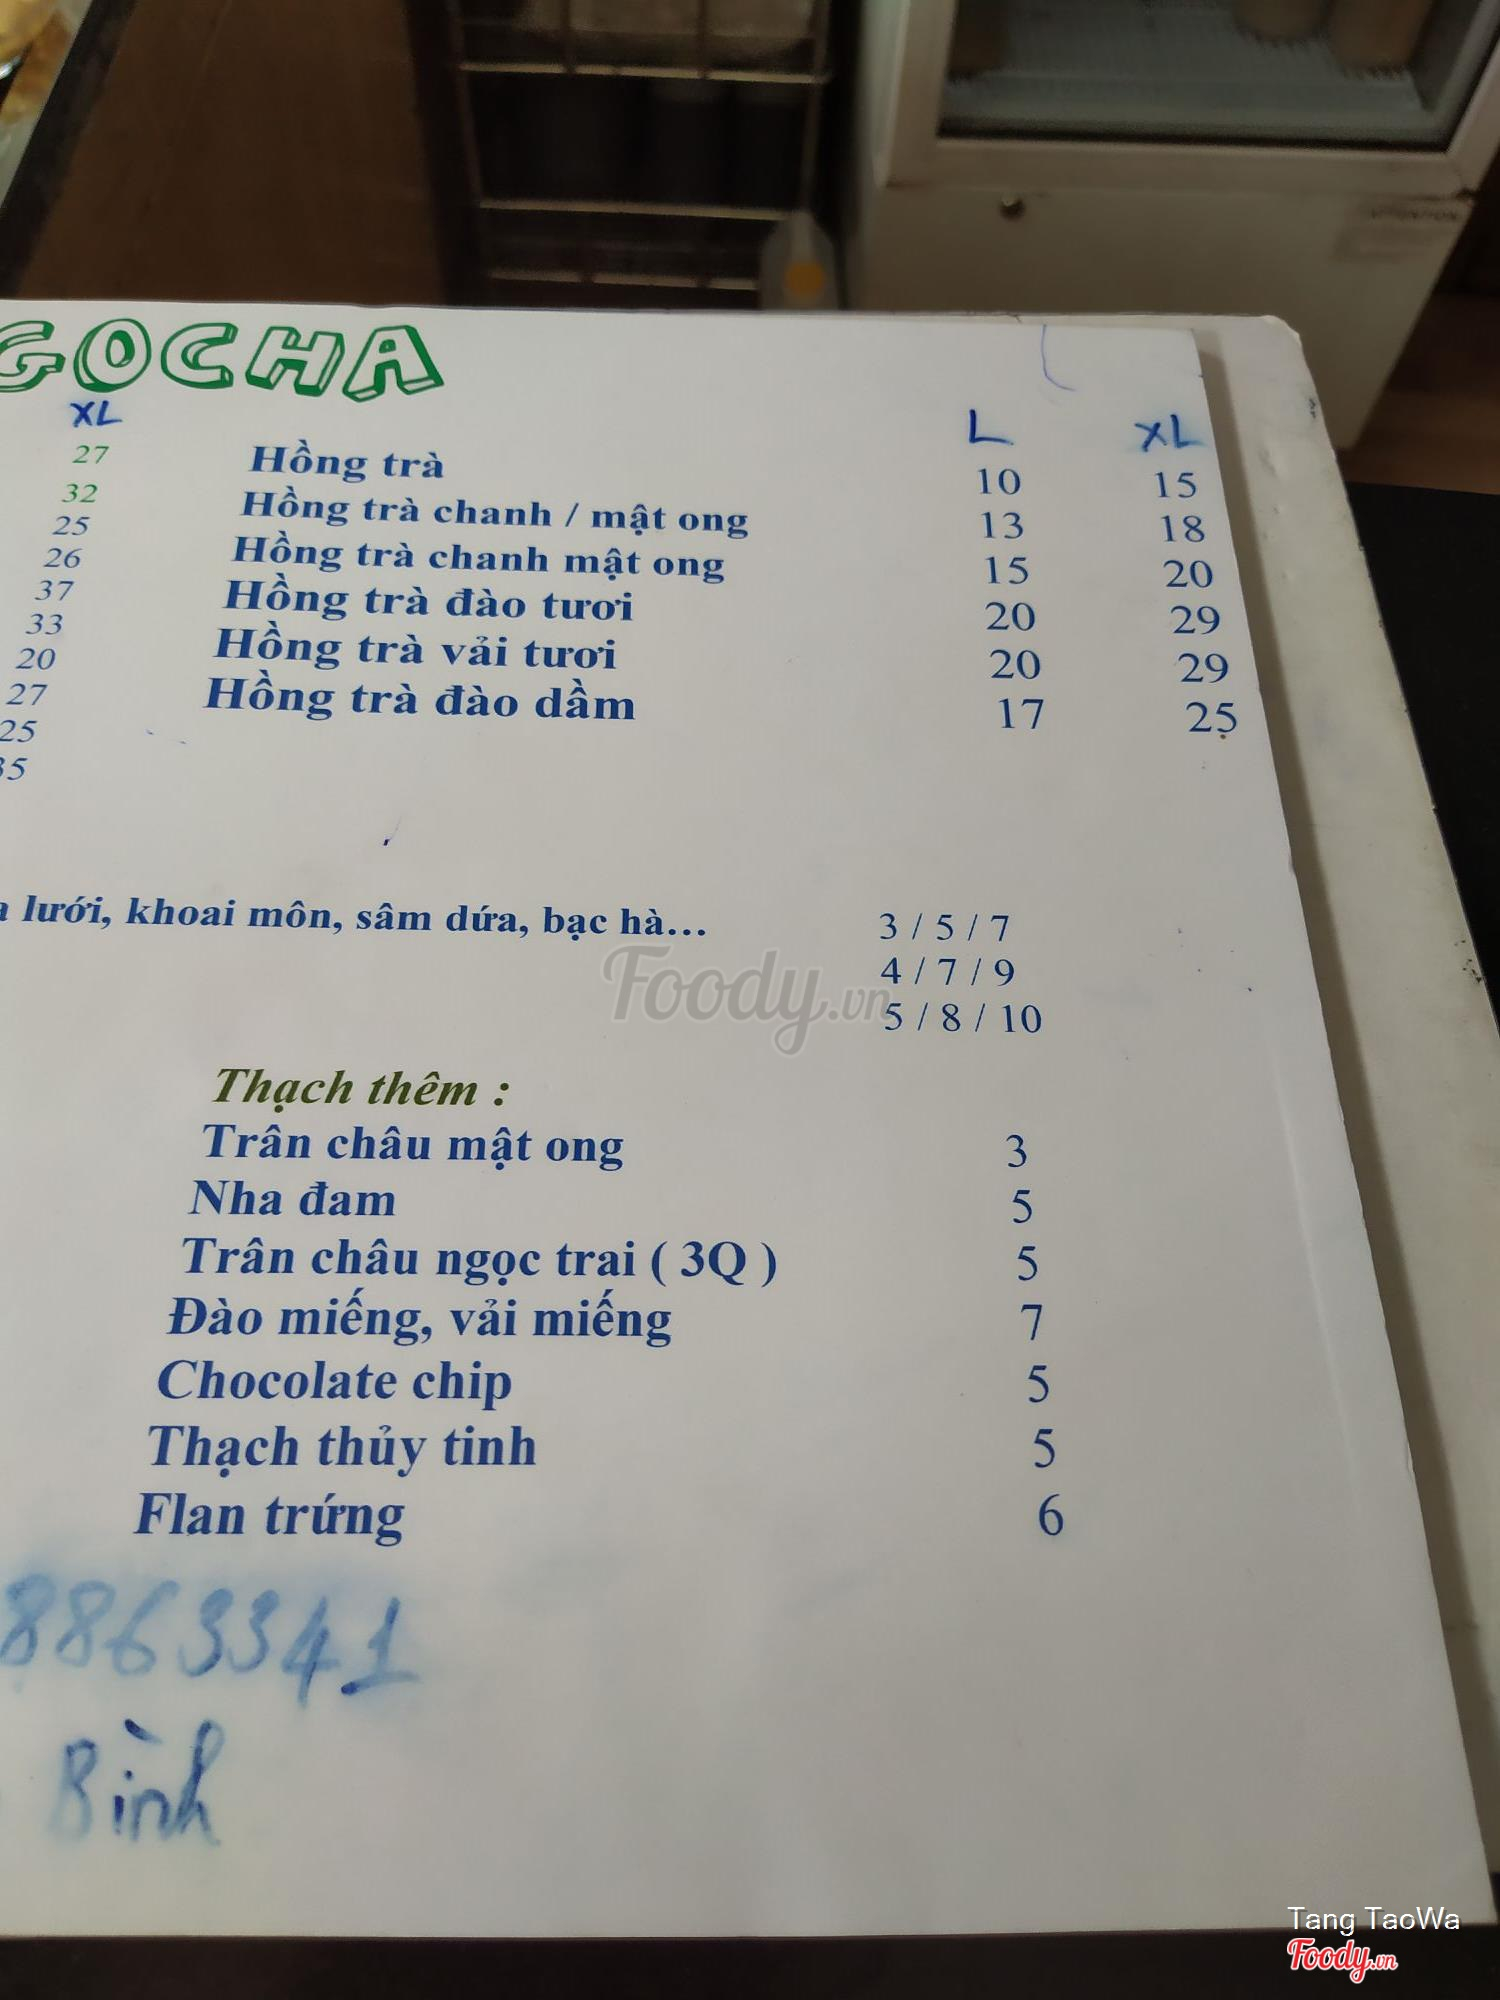 GOCHA
XL L XL
27 Hồng trà 10 15
32 Hồng trà chanh / mật ong 13 18
25 Hồng trà chanh mật ong 15 20
26 Hồng trà đào tươi 20 29
37 Hồng trà vải tươi 20 29
33 Hồng trà đào dầm 17 25
20
27
25
35
lưới, khoai môn, sâm dứa, bạc hà... 3 / 5 / 7
4 / 7 / 9
5 / 8 / 10
Foody.vn
Thạch thêm :
Trân châu mật ong 3
Nha đam 5
Trân châu ngọc trai ( 3Q ) 5
Đào miếng, vải miếng 7
Chocolate chip 5
Thạch thủy tinh 5
Flan trứng 6
8863341
Bình
Tang TaoWa
Foody.vn